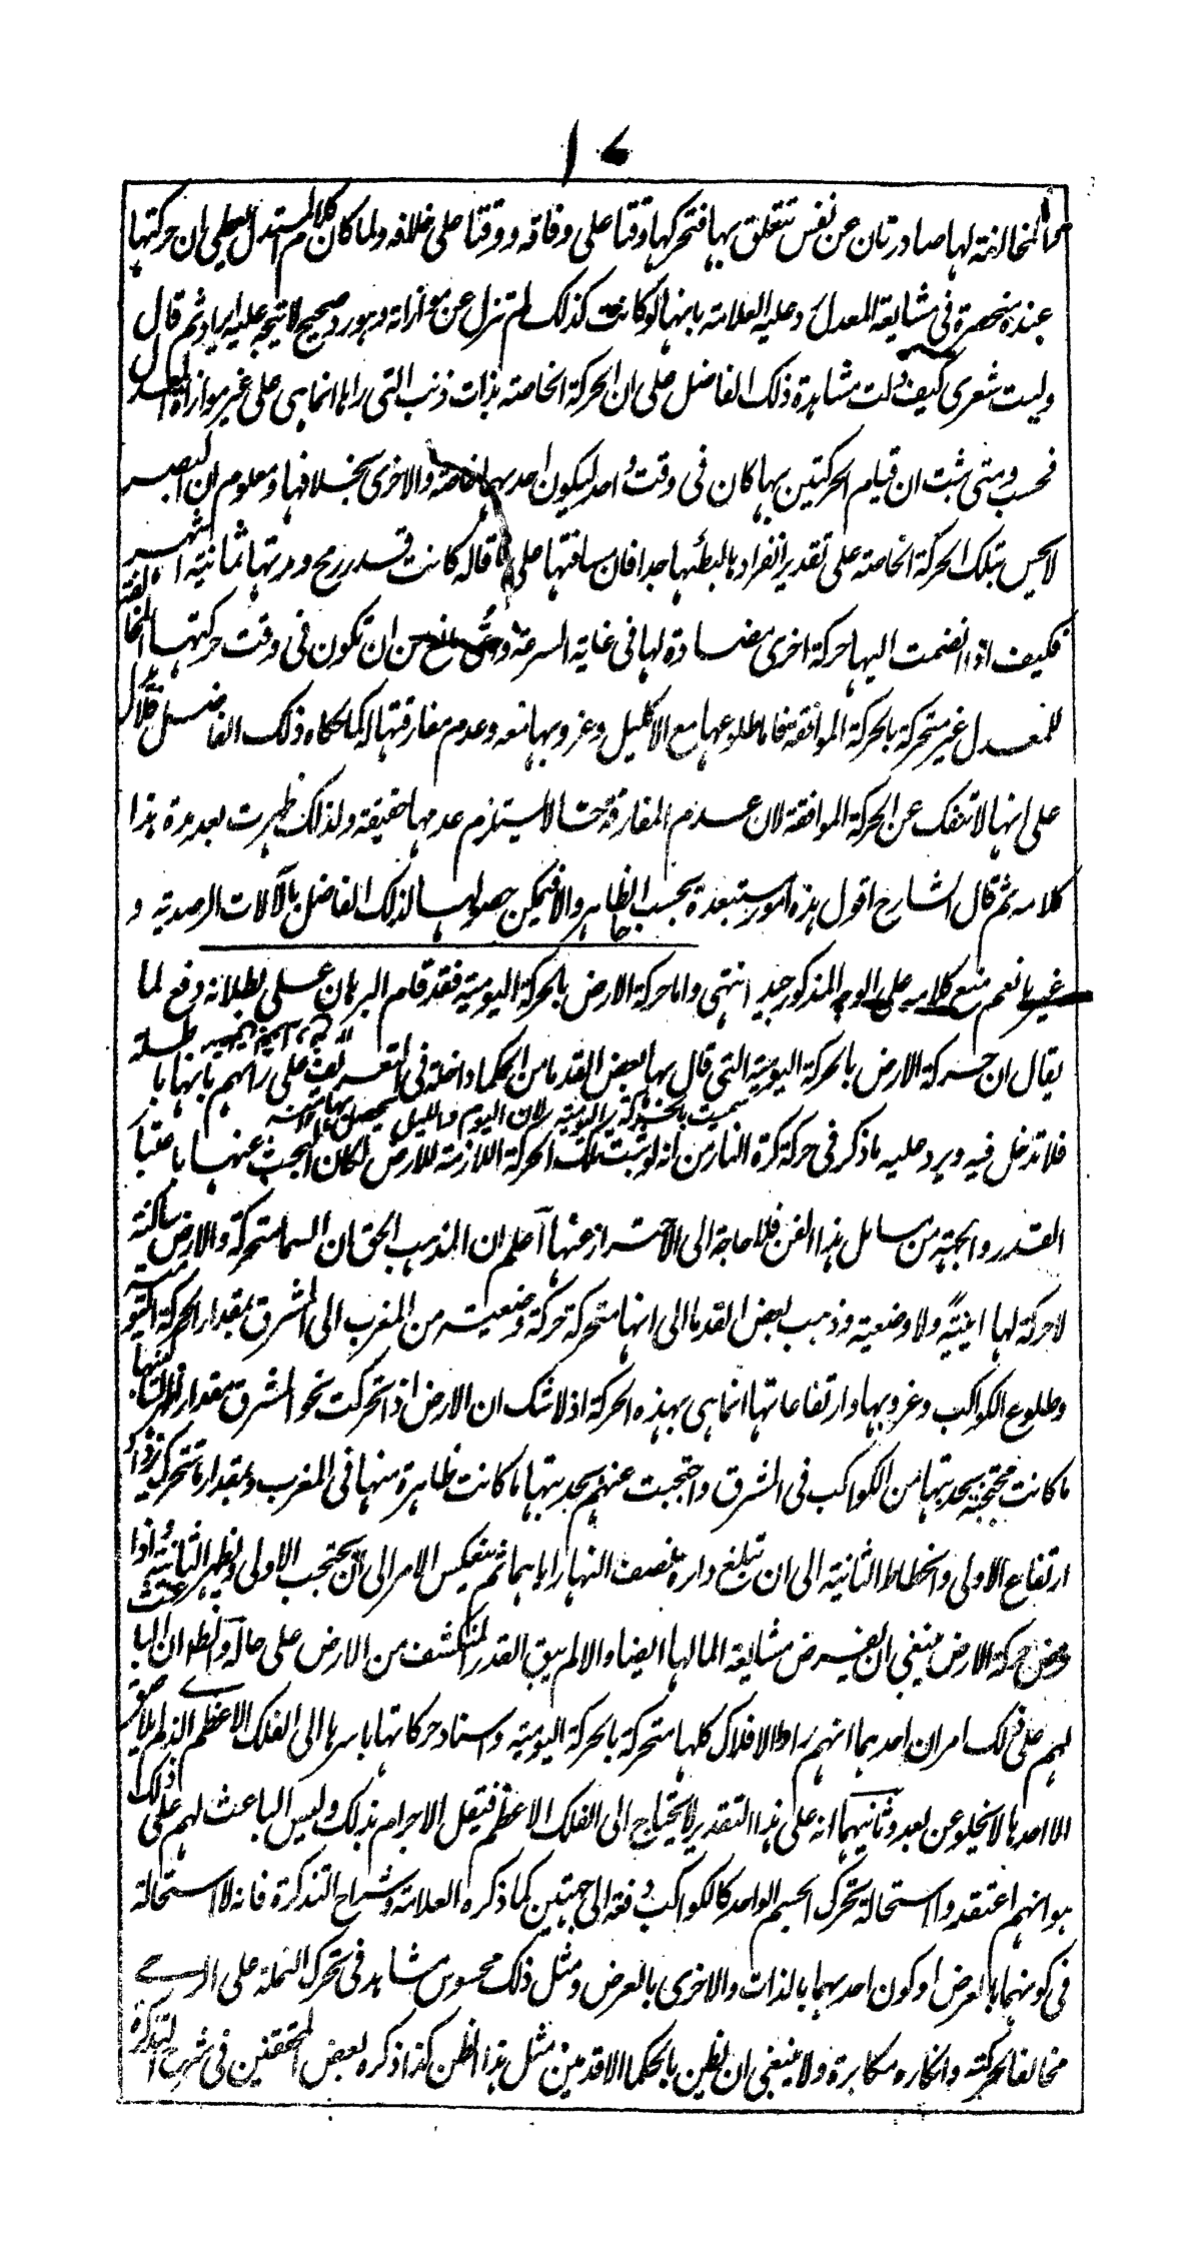 ١٠
المخالفة لها صادرتان عن نفس تتعلق بها فتحركها وقتا على وفاقه ووقتا على خلافه ولما كان كلام المستدل ان حركتها
عنده منحصرة فى مشايعة المعدل رد عليه العلامة بانها لو كانت كذلك لم تزل عن موازاته وهو رد صحيح لا يتجه عليه ايراد ثم قال
وليت شعرى كيف دلت مشاهدة ذلك الفاضل على ان الحركة الخاصة بذات ذنب التى راها انما هى على غير موازاة المعدل
فحسب ومتى ثبت ان قيام الحركتين بها كان فى وقت واحد ليكون احدهما خاصة والاخرى بخلافها ومعلوم ان البصر
لا يحس بتلك الحركة الخاصة على تقدير انفرادها لبطئها جدا فان مسافتها على ما قاله كانت قدر رمح ومدتها ثمانية اشهر
فكيف اذا انضمت اليها حركة اخرى مضادة لها فى غاية السرعة واى مانع من ان تكون فى وقت حركتها المخالفة
للمعدل غير متحركة بالحركة الموافقة فما طلوعها مع الاكليل وغروبها معه وعدم مفارقتها له كما حكاه ذلك الفاضل فلا دلالة
على انها لا تنفك عن الحركة الموافقة لان عدم المفارقة حسا لا يستلزم عدمها حقيقة ولذلك ظهرت بعد مدة هذا
كلامه ثم قال الشارح اقول هذه امور مستبعدة بحسب الظاهر والا فيمكن حصولها لذلك الفاضل بالآلات الرصدية و
غيرها نعم منع كلامه على الوجه المذكور جيد انتهى واما حركة الارض بالحركة اليومية فقد قام البرهان على بطلانه دفع لما
يقال ان حركة الارض بالحركة اليومية التى قال بها بعض القدما من الحكما داخلة فى التعريف على رايهم بانها باطلة
سميت بالحركة اليومية لان اليوم والليل يتحصل بها
فلا تدخل فيه ويرد عليه ما ذكر فى حركة كرة النار من انه لو ثبت تلك الحركة اللازمة للارض لكان البحث عنها باعتبار
القدر والجهة من مسائل هذا الفن فلا حاجة الى الاحتراز عنها اعلم ان المذهب الحق ان السما متحركة والارض ساكنة
لا حركة لها اينية ولا وضعية وذهب بعض القدما الى انها متحركة حركة وضعية من المغرب الى المشرق بمقدار الحركة اليومية
وطلوع الكواكب وغروبها وارتفاعاتها انما هى بهذه الحركة اذ لا شك ان الارض اذا تحركت نحو المشرق بمقدار ظهر لساكنيها
ما كانت محتجبة بحدبتها من الكواكب فى المشرق واحتجبت عنهم بحدبتها ما كانت ظاهرة منها فى المغرب وبمقدار ما تتحرك يزداد
ارتفاع الاولى وانحطاط الثانية الى ان تبلغ دائرة نصف النهار اياهما ثم ينعكس الامر الى ان يحتجب الاولى ويظهر الثانية واذا
فرض حركة الارض فينبغى ان يفرض مشايعة الما لها ايضا والا لم يبق القدر المنكشف من الارض على حاله وانطوا ان الباعث
لهم على ذلك امران احدهما انهم راوا الافلاك كلها متحركة بالحركة اليومية واسناد حركاتها باسرها الى الفلك الاعظم الذى لا يلاصقه
الا احدها لا يخلو عن بعد وثانيهما انه على هذا التقدير لا يحتاج الى الفلك الاعظم فيقل الاجرام بذلك وليس الباعث لهم على ذلك
هو انهم اعتقدوا استحالة تحرك الجسم الواحد كالكواكب دفعة الى جهتين كما ذكره العلامة وشراح التذكرة فانه لا استحالة
فى كونهما بالعرض او كون احدهما بالذات والاخرى بالعرض ومثل ذلك محسوس مشاهد فى تحرك النملة على الرحى
مخالفا لحركته وانكاره مكابرة ولا ينبغى ان يظن بالحكما الاقدمين مثل هذا الظن كذا ذكره بعض المحققين فى شرح التذكرة